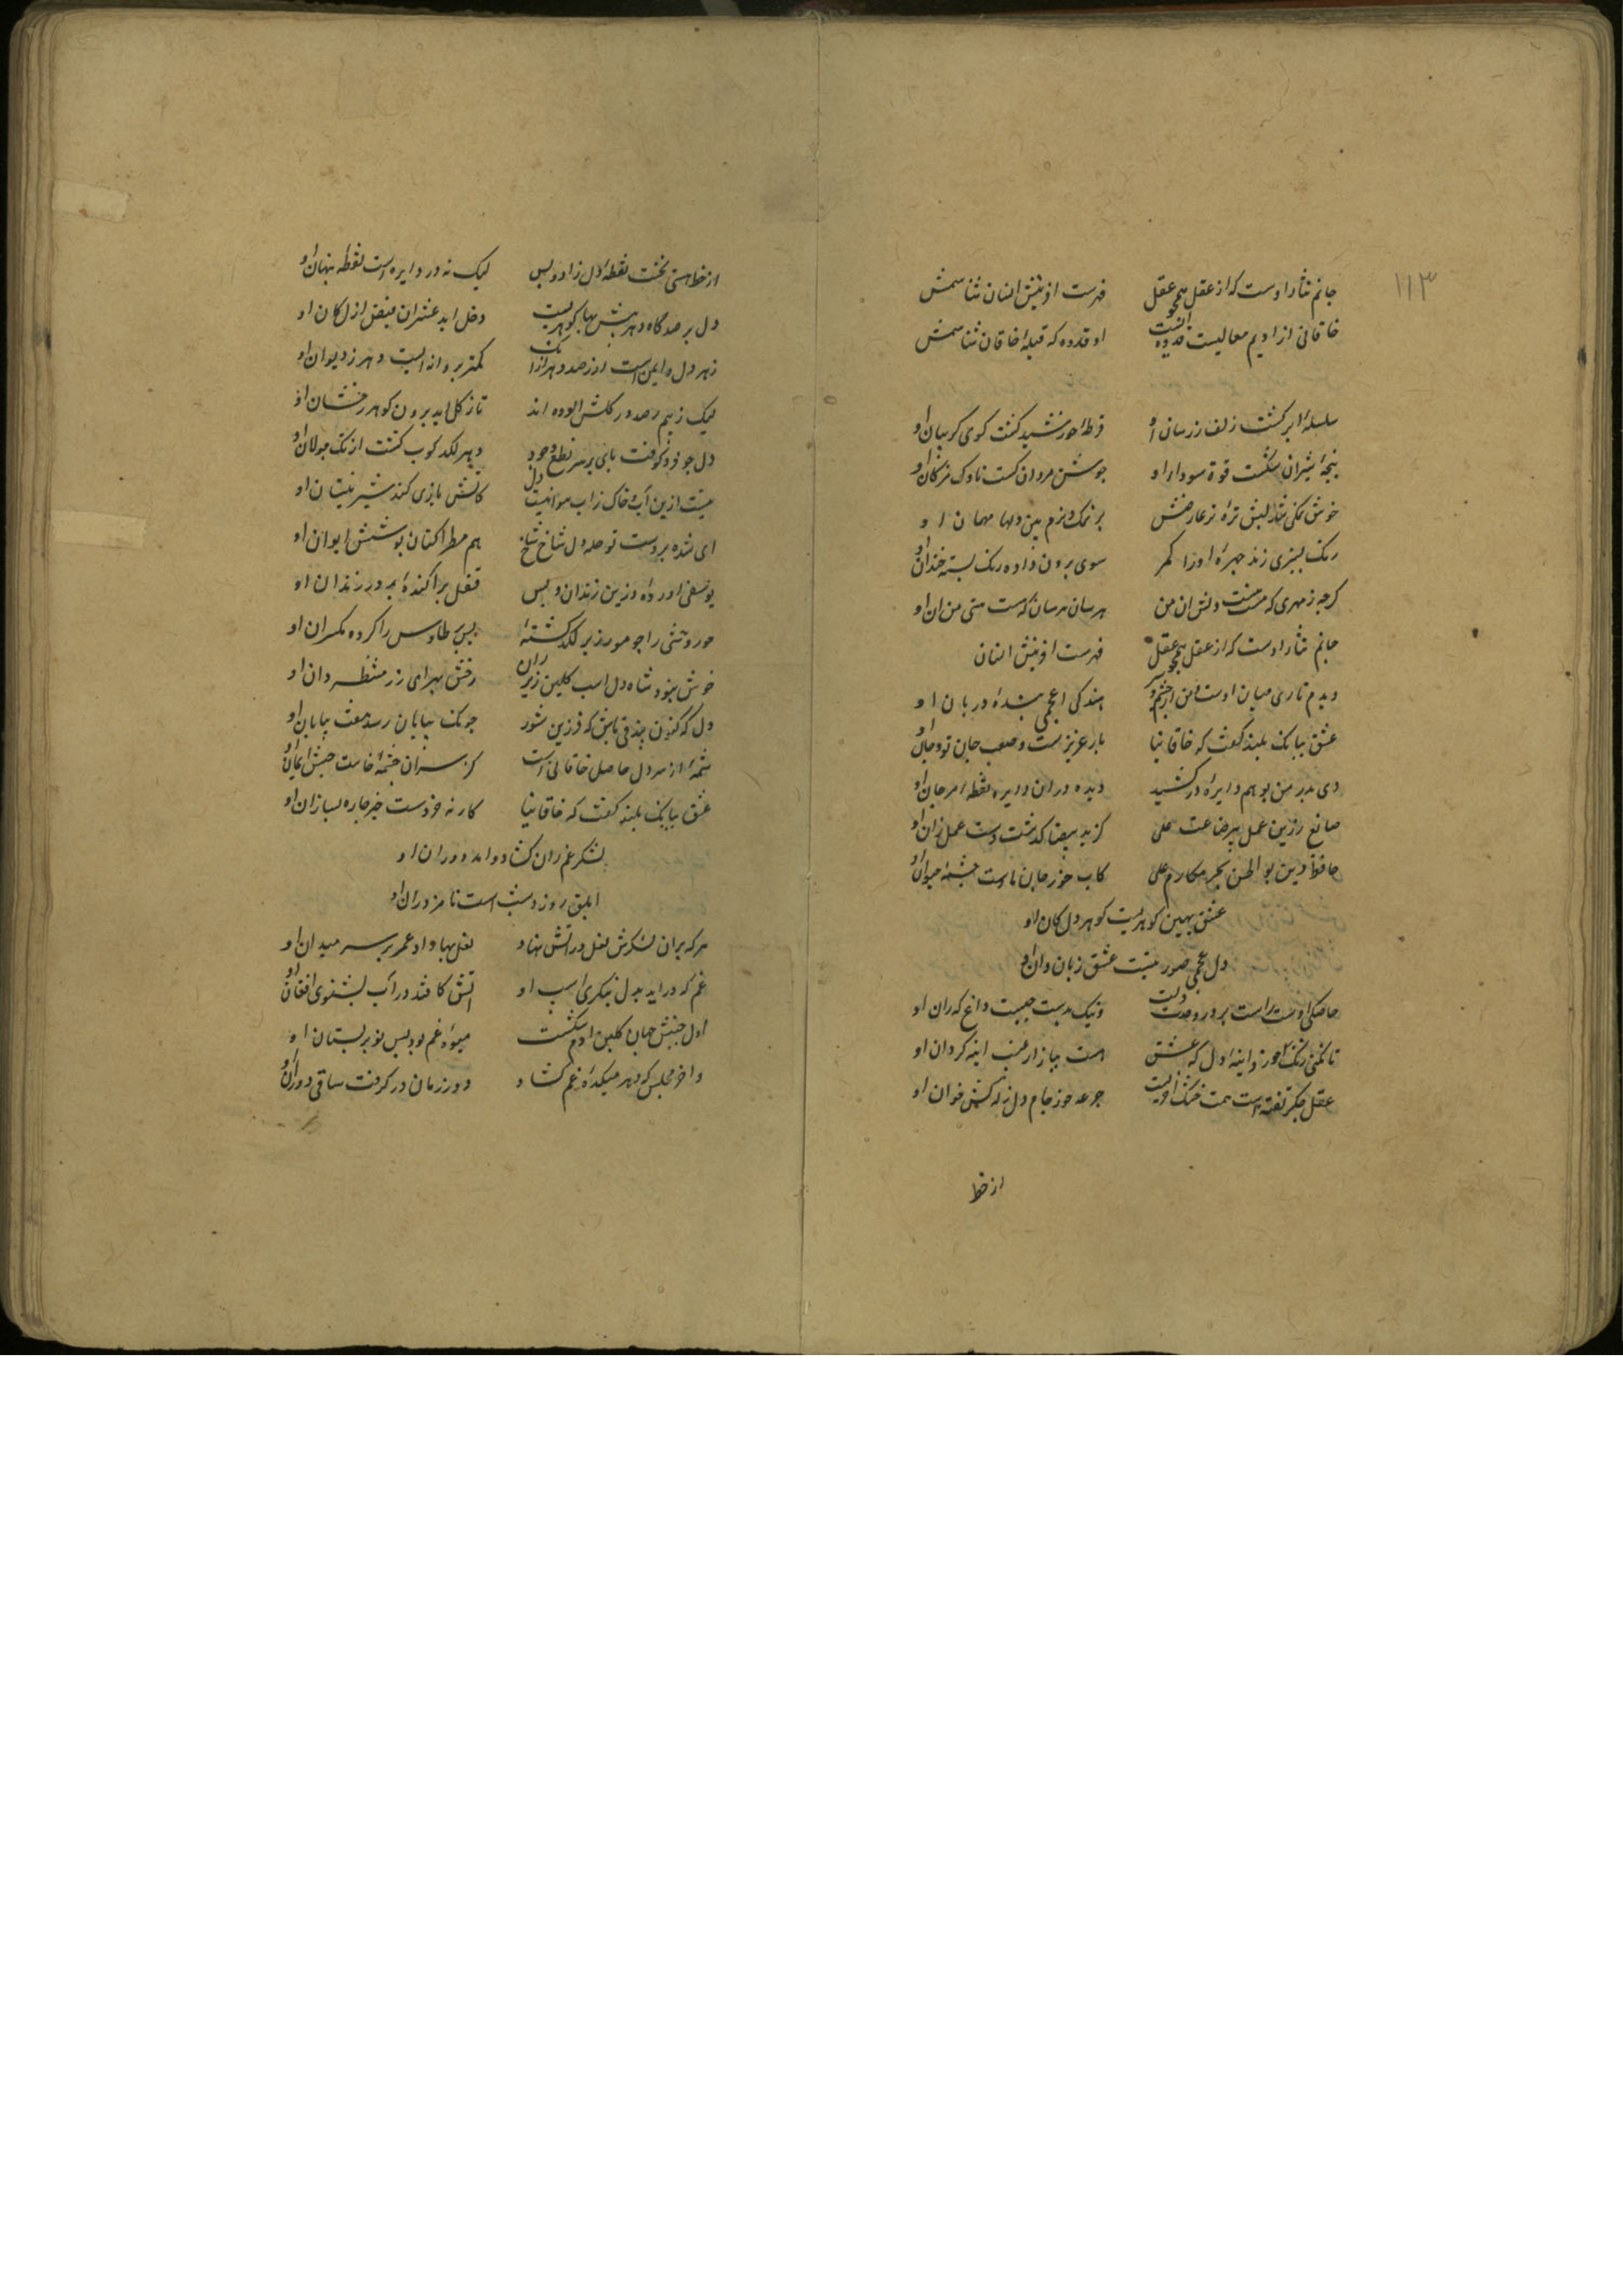 ۱۱۳
جانم نثار اوست که از عقل همچو عقل فهرست آفرینش انسان شناسمش
خاقانی از ادیم معالیست قدوه او قدوه که قبله خاقان شناسمش
سلسله ابر کشت زلف زره سان او قرطه خورشید کشت کوی کریبان او
پنجه شیران شکست قوة سودای او جوشن مردان کسست ناوک مژکان او
خوش نمکی شد لبش تره تر عارضش بر نمک و تره بین دلها مهمان او
رنک بسبزی زند چهره او را مکر سوی برون داده رنک پسته خندان او
کرچه ز مهری که نیست نیست دلش آن من هر سان هر سان که هست هستی من آن او
جانم نثار اوست که از عقل همچو عقل فهرست آفرینش انسان
دیدم تاری میان اوست هندکی اعجمی شده دربان او
عشق ببانک بلند کفت که خاقانیا یار عزیزست و صعب جان تو و جان او
دی پدر من بوهم دایره در کشید دیده در آن دایره نقطه مرجان او
صانع زرین عمل پیر صناعت علی کز ید بیضا کذشت دست عمل ران او
حافظ دین بو الحسن بحر مکارم علی کاب خور جان ماست چشمه حیوان او
عشق بهین کوهریست کوهر دل کان او
دل عجمی صورتیست عشق زبان دان او
خاصکی او ونیک بدست حبیب داغ که ران او
تا نکنی زنک خورد آینه دل که عشق هست ببازار غیب آینه کردان او
عقل جکر تفته است همت خشک آخریست جرعه خور جام دل زله کش خوان او
از خط
از خط هستی نخست نقطه دل زاد و بس لیک نه در دایره است نقطه پنهان او
دل بر صدکاه دهر بیش بها کوهریست دخل ابد عشر آن فیض ازل کان او
زهر دل ایمن است از زصد دهر کمتر پروانه ایست دهر ز دیوان او
لیک ز بیم رصد در کلش آلوده اند تا ز کل آید برون کوهر رخشان او
دل چو فرو کوفت پای بر سر نطع وجود دهر لکد کوب کشت از تک جولان او
نیست ازین آب و خاک زاب هوائیست دل کاتش بازی کند شیر نیستان او
ای شده بر دست تو حله دل شاخ شاخ هم مطرا کنان پوشش ایوان او
یوسفی آورده درین زندان و پس قفل پراکنده بر در زندان او
حور وشی را چو مور زیر لکد کشته پس پر طاوس را کرده مکس ران او
خوش نبود شاه دل اسب کلین زیر ران رخش بهرای زر منتظر ران او
دل که کنون بیذقیست باش که فرزین شود چونک بپایان رسد هفت بیابان او
شمه از سر دل حاصل خاقانی است کز سر آن شمه خاست جنبش ایمان او
عشق ببانک بلند کفت که خاقانیا کار نه خردست خیز چاره بساز آن او
لشکر غم ران کشاد آمد دوران او
ابلق روز و شبست نامزد ران او
هرکه بر آن لشکرش نعل در آتش نهاد نعل بها داد عمر بر سر میدان او
غم که درآید بدل بنکری آسیب او آتش کافتد در آب بشنوی افغان او
اول جنبش جهان کلبن آدم شکفت میوه غم بود و بس نوبر بستان او
و آخر مجلس که دهر میکده غم کشاد دور زمان در کرفت ساقی دوران او